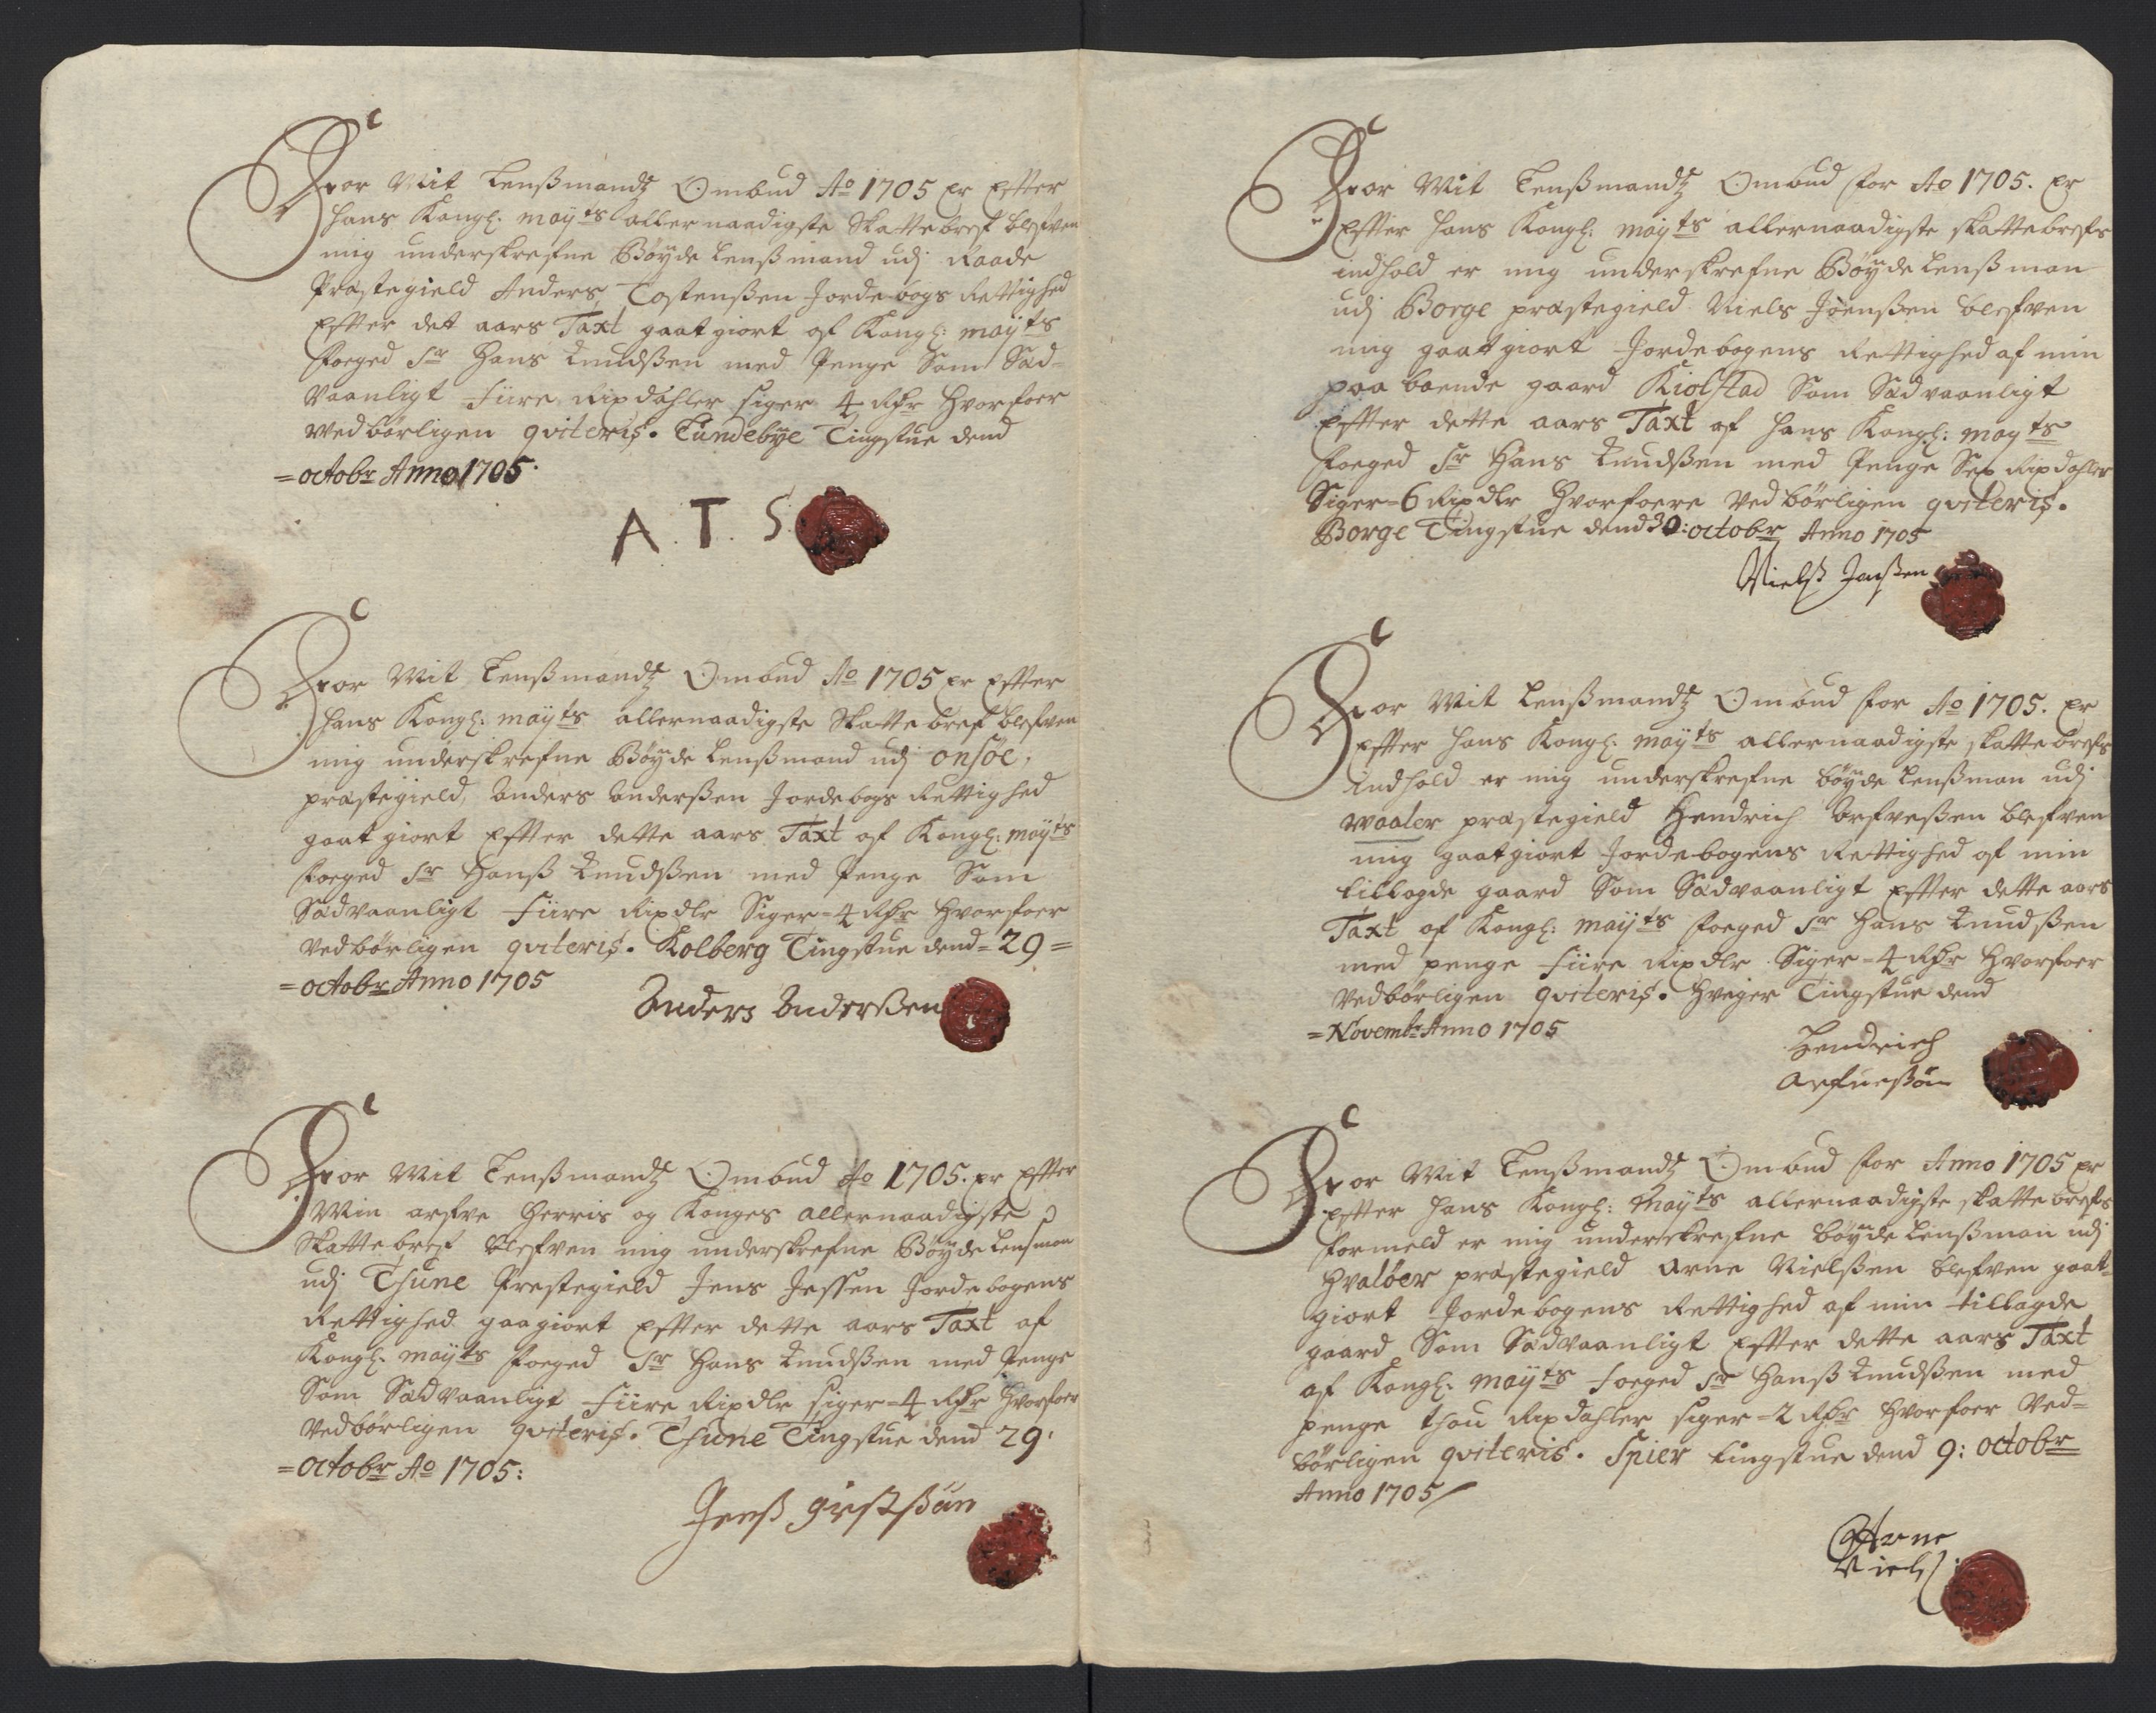 For Mit Lenßmandz Ombud Ao 1705 er Efter
Hans Kongl. mayts allernaadigste Skattebref blefven
mig underskrefne Böyde Lenßmand udj Raade
Præstegield Anders Tostenßen Jordebogs Rettighed
Efter det aars Taxt gaat giort af Kongl: mayts
foeged Sr Hans Knudßen med Penge Som Sæd-
vaanligt fiire Rixdahler siger 4 Rdr Hvorfoer
vedbörligen qviteris. Tundebye Tingstue dend
=octobr Anno 1705.
A. T. S
For Mit Lenßmandz Ombud Ao 1705 er Efter
Hans Kongl: mayts allernaadigste Skattebref blefven
mig underskrefne Böyde Lenßmand udj onsöe,
præstegield, Anders Anderßen Jordebogs Rettighed
gaat giort Efter dette aars Taxt af Kongl: mayts
foeged Sr Hanß Knudßen med Penge Som
Sædvaanligt fiire Rixdlr Siger=4 Rdr Hvorfoer
vedbörligen qviteris. Kolberg Tingstue dend=29=
=octobr Anno 1705
Anders Anderßen
For Mit Lenßmandz Ombud Ao 1705. er Efter
Min arfve Herris og Konges allernaadigste
Skattebref blefven mig underskrefne Böyde Lensman
udj Thune Prestegield Jens Jessen Jordebogens
Rettighed gaagiort Efter dette aars Taxt af
Kongl. mayts foeged Sr Hans Knudßen med Penge
Som Sædvaanligt fiire Rixdlr siger=4 Rdr Hvorfoer
vedbörligen qviteris. Thune Tingstue dend 29.
=octobr Ao 1705:
Jenß
For Mit Lenßmandz Ombud for Ao 1705. er
Efter Hans Kongl: mayts allernaadigste skattebrefs
indhold er mig underskrefne Böyde Lenßman
udj Borge præstegield Niels Joenßen blefven
mig gaatgiort Jordebogens Rettighed af min
paa boende gaard Kiolstad Som Sædvaanligt
Efter dette aars Taxt af Hans Kongl: mayts
foeged Sr Hans Knudßen med Penge Sex Rixdahler
Siger=6 Rixdlr Hvorfoere vedbörligen qviteris.
Borge Tingstue dend 30: octobr Anno 1705
Nielß Jonßen
For Mit Lenßmandz Ombud for Ao 1705. er
Efter Hans Kongl. mayts allernaadigste skattebrefs
Indhold er mig underskrefne böyde Lenßman udj
Waaler præstegield Hendrich Arfveßen blefven
mig gaatgiort Jordebogens Rettighed af min
tillagde gaard Som Sædvaanligt Efter dette aars
Taxt af Kongl: mayts foeged Sr Hans Knudßen
med penge fiire Rixdlr Siger=4 Rdr Hvorfoer
vedbörligen qviteris. Tingstue dend
=Novembr Anno 1705
Hendrich
Arfueßön
For Mit Lenßmandz Ombud for Anno 1705 er
Efter Hans Kongl: Mayts allernaadigste skattebrefs
formeld er mig underskrefne böyde Lenßman udj
Hvalöer præstegield Arne Nielßen blefven gaat-
giort Jordebogens Rettighed af min tillagde
gaard Som Sædvaanligt Efter dette aars Taxt
af Kongl. mayts foeged Sr Hanß Knudßen med
penge thou Rixdahler siger=2 Rdr Hvorfoer Ved=
börligen qviteris. Spier tingstue dend 9: octobr
Anno 1705
Arne
Niels